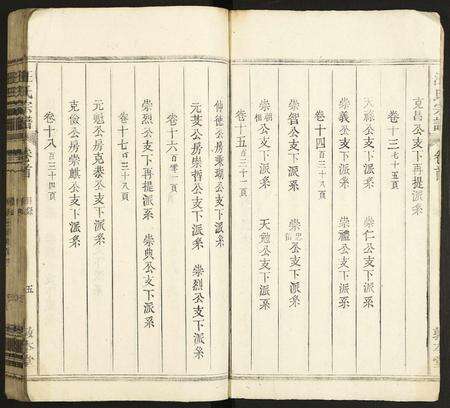 克昌公支下再提派系
卷十三 七十五頁
天祿公支下派系 崇仁公支下派系
崇義公支下派系 崇禮公支下派系
卷十四 百三十八頁
崇智公支下派系 公支下派系
公支下派系 天勉公支下派系
卷十五 百三十一頁
仲德公房秉瑚公支下派系
元芝公房崇哲公支下派系 崇烈公支下派系
卷十六 百零一頁
崇烈公支下再提派系 崇典公支下派系
卷十七 百二十八頁
元魁公房克泰公支下派系
克儉公房崇麒公支下派系
卷十八 百三十四頁
汪氏宗譜 卷首
目錄
五
敦本堂